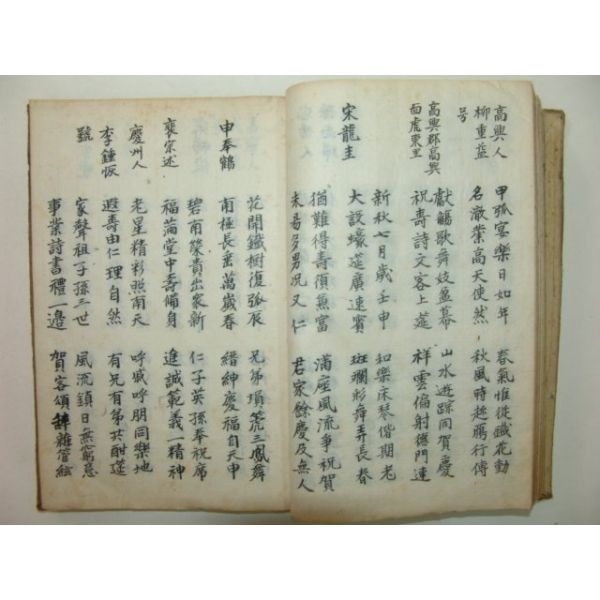 高興人 甲弧宴樂日如年 春氣惟從鐵花動
柳重益 名澈業高天使然 秋風時趁鴈行傳
号
高興郡高興 獻觴歌舞妓盈幕 山水遊蹤同賀慶
面虎東里 祝壽詩文客上莚 祥雲偏射德門連
新秋七月歲壬申 和樂床琴偕期老
宋龍圭 大設莚廣速賓 斑斕彩舞弄長春
猶難得壽須兼富 滿座風流爭祝賀
未易多男況又仁 君家餘慶及無人
花開鐵樹復弧辰 兄弟塤箎三鳳舞
申奉鶴 南極長垂萬歲春 縉紳慶福自天申
碧南榮貴出家新 仁子英孫奉祝席
裵宗述 福滿堂中壽備身 進誠範義一精神
慶州人 老星精彩照南天 呼戚呼朋同樂地
李鍾恢 遐壽由仁理自然 有兄有弟共酣莚
號 家聲祖子孫三世 風流鎮日無窮意
事業詩書禮一邊 賀客頌辭雜管絃